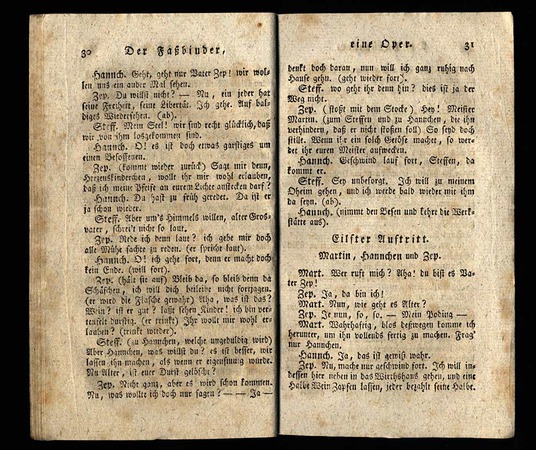 30 Der Faßbinder,
Hannch. Geht, geht nur Vater Zep! wir wol-
len uns ein ander Mal sehen.
Zep. Du willst nicht? — Nu, ein jeder hat
seine Freiheit, seine Libertät. Ich gehe. Auf bal-
diges Wiedersehen. (ab).
Steff. Mein Seel! wir sind recht glücklich, daß
wir von ihm losgekommen sind.
Hannch. O! es ist doch etwas garstiges um
einen Besoffenen.
Zep. (kommt wieder zurück) Sagt mir denn,
Herzenskinderchen, wollt ihr mir wohl erlauben,
daß ich meine Pfeife an eurem Lichte anstecken darf?
Hannch. Du hast zu früh geredet. Da ist er
ja schon wieder.
Steff. Aber um's Himmels willen, alter Gros-
vater, schrei't nicht so laut.
Zep. Rede ich denn laut? ich gebe mir doch
alle Mühe sachte zu reden. (er spricht laut).
Hannch. O! ich geh fort, denn er macht doch
kein Ende. (will fort).
Zep. (hält sie auf) Bleib da, so bleib denn da
Schäfchen, ich will dich beileibe nicht fortjagen.
(er wird die Flasche gewahr) Aha, was ist das?
Wein? ist er gut? laßt sehen Kinder! ich bin ver-
teufelt durstig. (er trinkt) Ihr wollt mir wohl er-
lauben? (trinkt wieder).
Steff. (zu Hannchen, welche ungeduldig wird)
Aber Hannchen, was willst du? es ist besser, wir
lassen ihn machen, als wenn er eigensinnig würde.
Nu Alter, ist euer Durst gelöscht?
Zep. Nicht ganz, aber es wird schon kommen.
Nu, was wollte ich doch nur sagen? — — Ja —
eine Oper. 31
denkt doch daran, nun will ich ganz ruhig nach
Hause gehn. (geht wieder fort).
Steff. wo geht ihr denn hin? dies ist ja der
Weg nicht.
Zep. (stoßt mit dem Stocke) Hey! Meister
Martin. (zum Steffen und zu Hannchen, die ihn
verhindern, daß er nicht stoßen soll) So seyd doch
stille. Wenn ihr ein solch Getöse machet, so wer-
det ihr euren Meister aufwecken.
Hannch. Geschwind lauf fort, Steffen, da
kommt er.
Steff. Sey unbesorgt. Ich will zu meinem
Oheim gehen, und ich werde bald wieder mit ihm
da seyn. (ab).
Hannch. (nimmt den Besen und kehrt die Werk-
stätte aus).
Eilfter Auftritt.
Martin, Hannchen und Zep.
Mart. Wer ruft mich? Aha! du bist es Va-
ter Zep!
Zep. Ja, da bin ich!
Mart. Nun, wie geht es Alter?
Zep. Je nun, so, so. — Mein Poding —
Mart. Wahrhaftig, blos deswegen komme ich
herunter, um ihn vollends fertig zu machen. Frag'
nur Hannchen.
Hannch. Ja, das ist gewiß wahr.
Zep. Nu, mache nur geschwind fort. Ich will in-
dessen hier neben in das Wirthshaus gehen, und eine
Halbe Wein Zapfen lassen, jeder bezahlt seine Halbe.